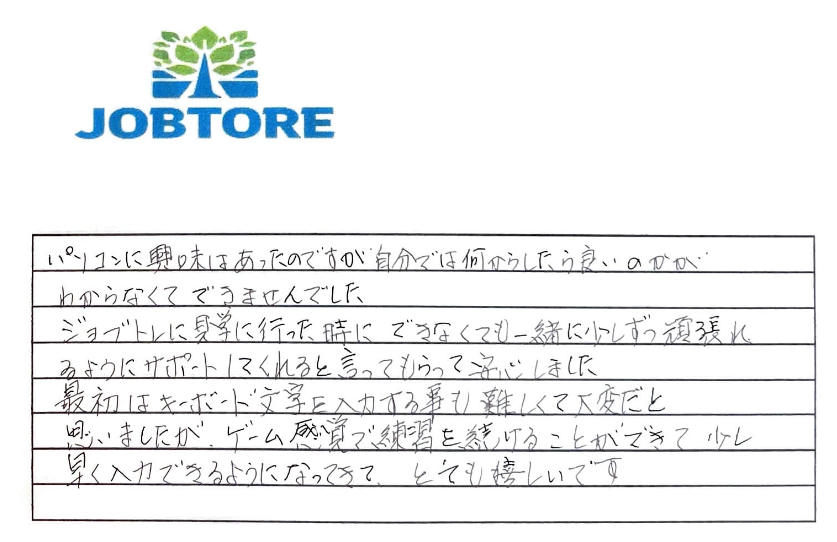 JOBTORE
パソコンに興味はあったのですが自分では何からしたら良いのかが
わからなくてできませんでした
ジョブトレに見学に行った時にできなくても一緒に少しずつ頑張れ
るようにサポートしてくれると言ってもらって安心しました
最初はキーボード文字を入力する事も難しくて大変だと
思いましたが、ゲーム感覚で練習を続けることができて少し
早く入力できるようになってきて、とても嬉しいです